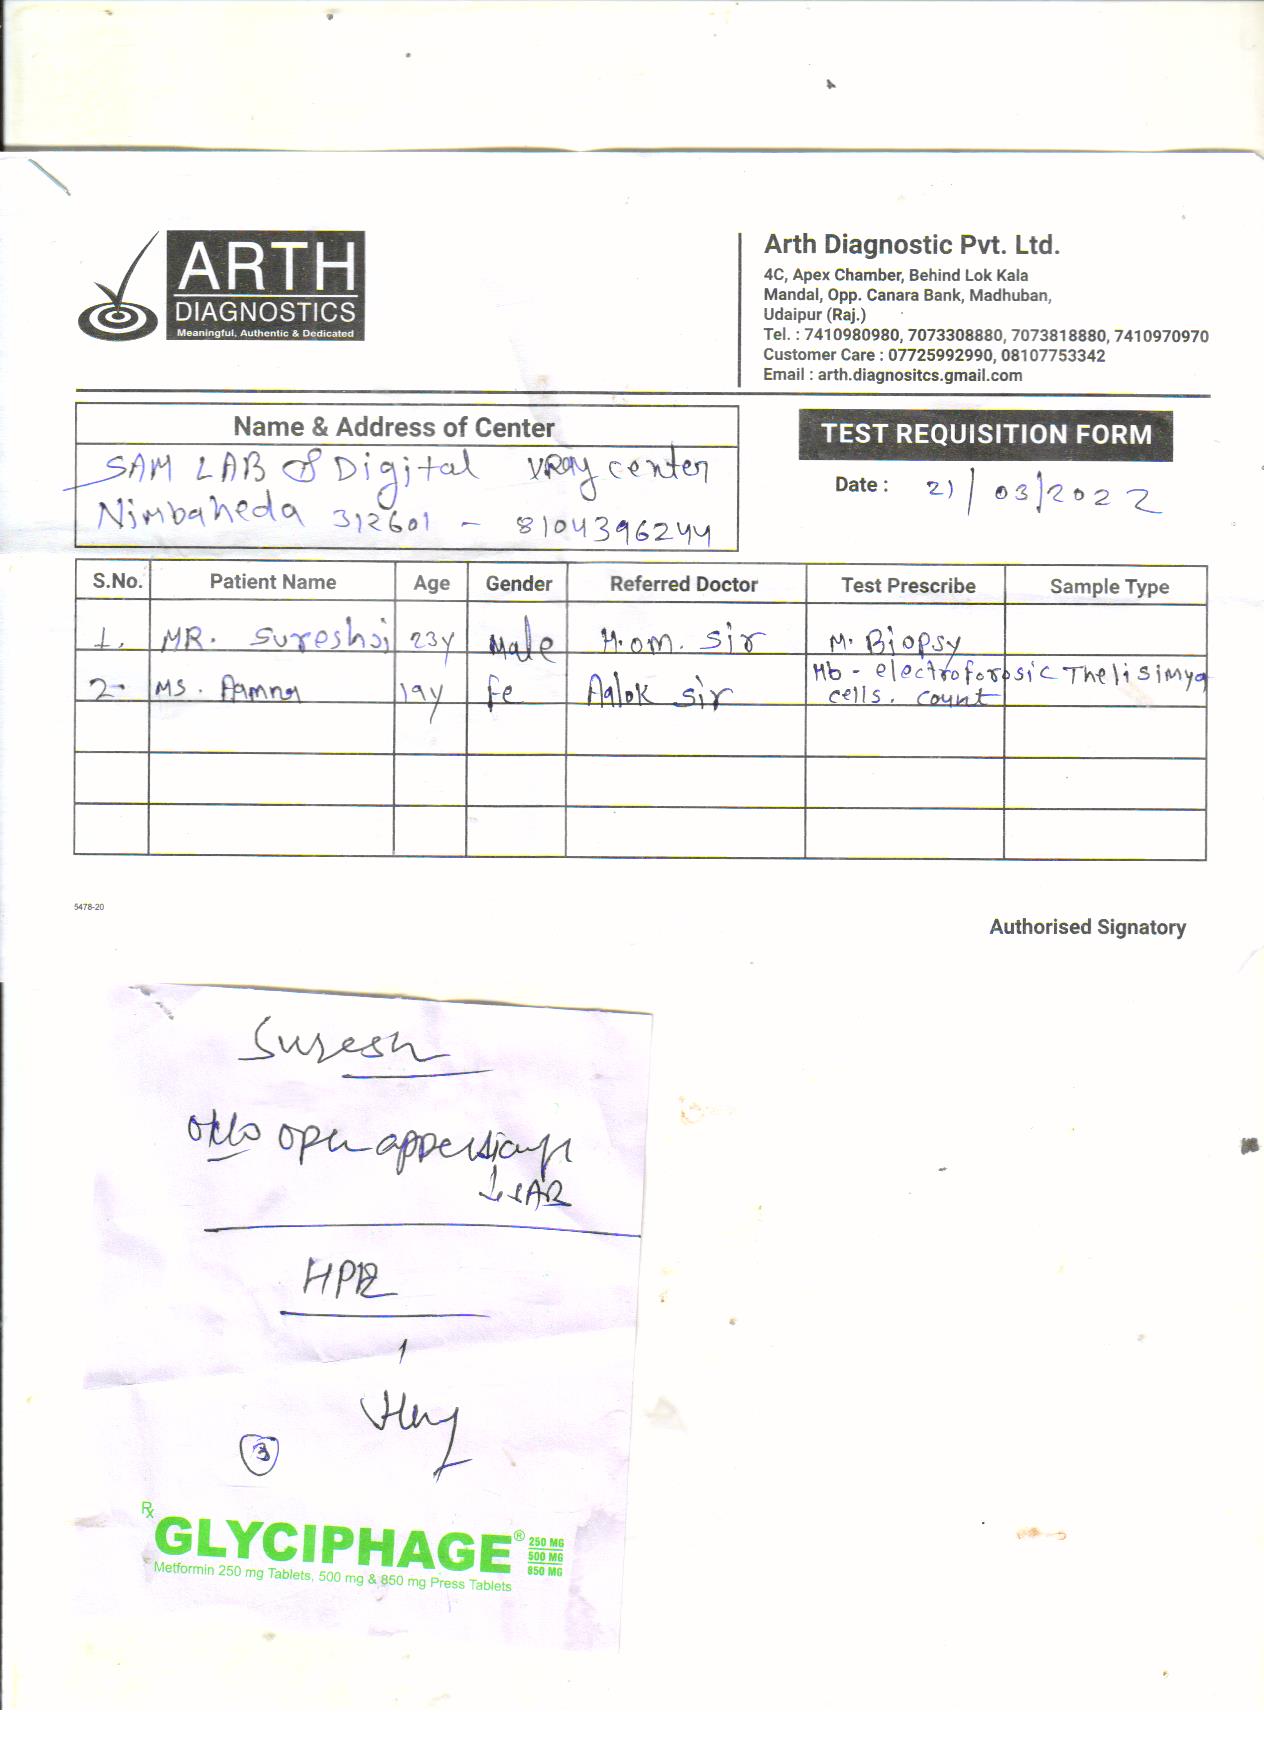 ARTH
DIAGNOSTICS
Meaningful, Authentic & Dedicated
Arth Diagnostic Pvt. Ltd.
4C, Apex Chamber, Behind Lok Kala
Mandal, Opp. Canara Bank, Madhuban,
Udaipur (Raj.)
Tel. : 7410980980, 7073308880, 7073818880, 7410970970
Customer Care : 07725992990, 08107753342
Email : arth.diagnositcs.gmail.com
Name & Address of Center
SAM LAB & Digital XRay center
Nimbaheda 312601 - 8104396244
TEST REQUISITION FORM
Date : 21/03/2022
S.No. Patient Name Age Gender Referred Doctor Test Prescribe Sample Type
1. MR. Sureshji 23y Male H.om. sir M. Biopsy
2- MS. Aamna 19y Fe Aalok sir Hb - electroforosic Thelisimya
cells. count
5478-20
Authorised Signatory
Suresh
open
HPR
3
Rx
GLYCIPHAGE® 250 MG
500 MG
850 MG
Metformin 250 mg Tablets, 500 mg & 850 mg Press Tablets